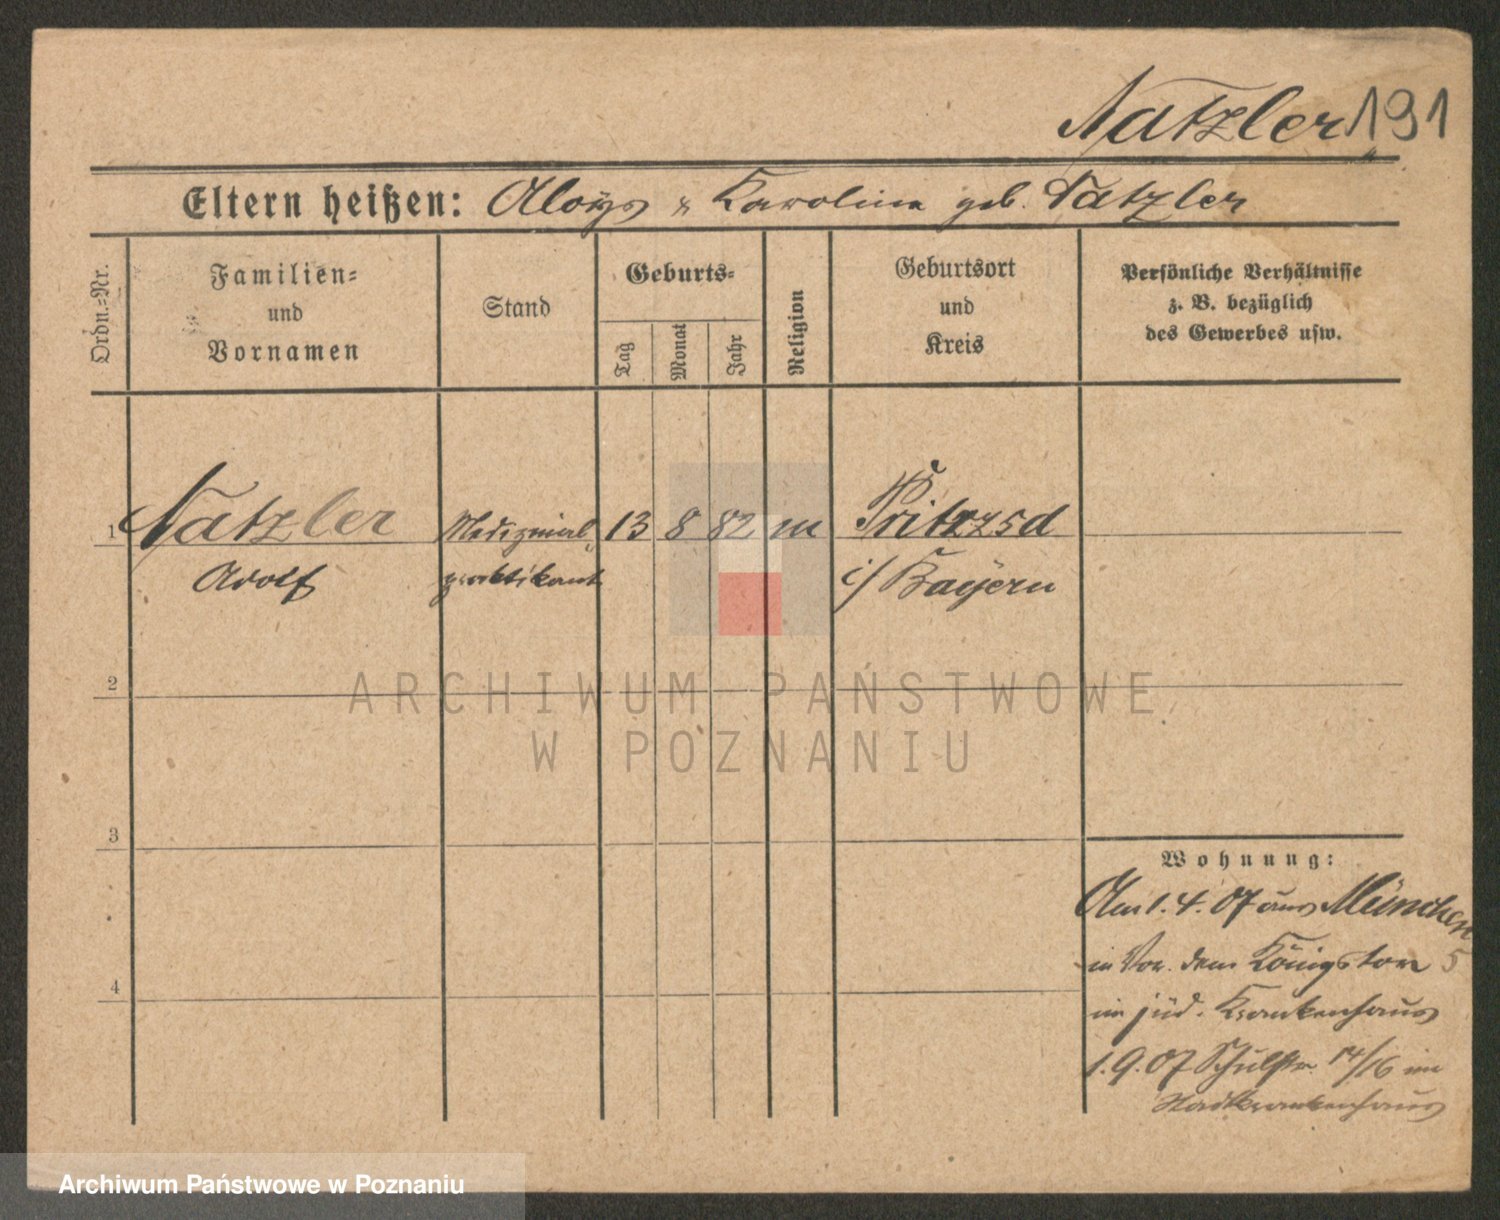 Natzler 191
Eltern heißen: Aloys u Karoline geb. Natzler
Ordn.-Nr.
Familien-
und
Vornamen
Stand
Geburts-
Tag
Monat
Jahr
Religion
Geburtsort
und
Kreis
Persönliche Verhältnisse
z. B. bezüglich
des Gewerbes usw.
1 Natzler Medizinal 13 8 82 m
Adolf praktikant i/ Bayern
2
ARCHIWUM PAŃSTWOWE
W POZNANIU
3
Wohnung:
Am 1. 4. 07 aus München
in Vor dem Königstor 5
im jüd. Krankenhaus
1. 9. 07 Schulstr. 14/16 im
Stadtkrankenhaus
4
Archiwum Państwowe w Poznaniu